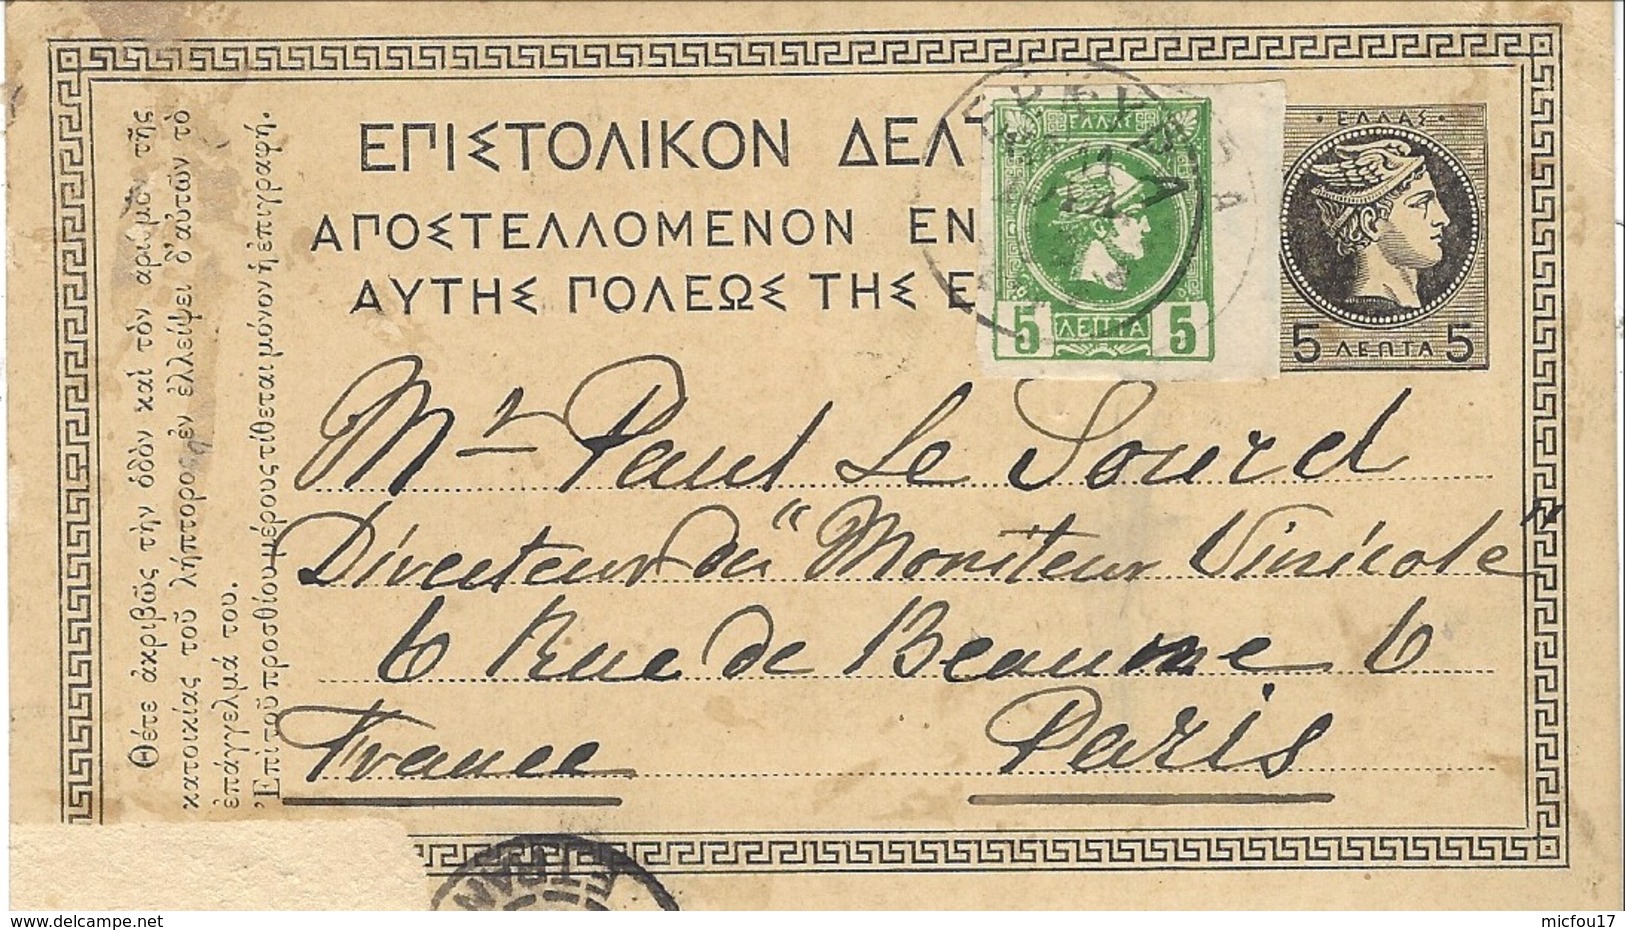 ΕΠΙΣΤΟΛΙΚΟΝ ΔΕΛΤ
ΑΠΟΣΤΕΛΛΟΜΕΝΟΝ ΕΝ
ΑΥΤΗΣ ΠΟΛΕΩΣ ΤΗΣ Ε
ΕΛΛΑΣ
5 ΛΕΠΤΑ 5
·ΕΛΛΑΣ·
5 ΛΕΠΤΑ 5
Θέτε ἀκριβῶς τὴν ὁδὸν καὶ τὸν ἀριθμὸν τῆς
κατοικίας τοῦ λήπτορος ἐν ἐλλείψει δ'αὐτῶν τὸ
ἐπάγγελμά του.
Ἐπὶ τοῦ προσθίου μέρους τίθεται μόνον ἡ ἐπιγραφή.
Mr Paul Le Sourd
Directeur du "Moniteur Vinicole"
6 Rue de Beaune 6
France Paris
ETRAN
delcampe.net
micfou17